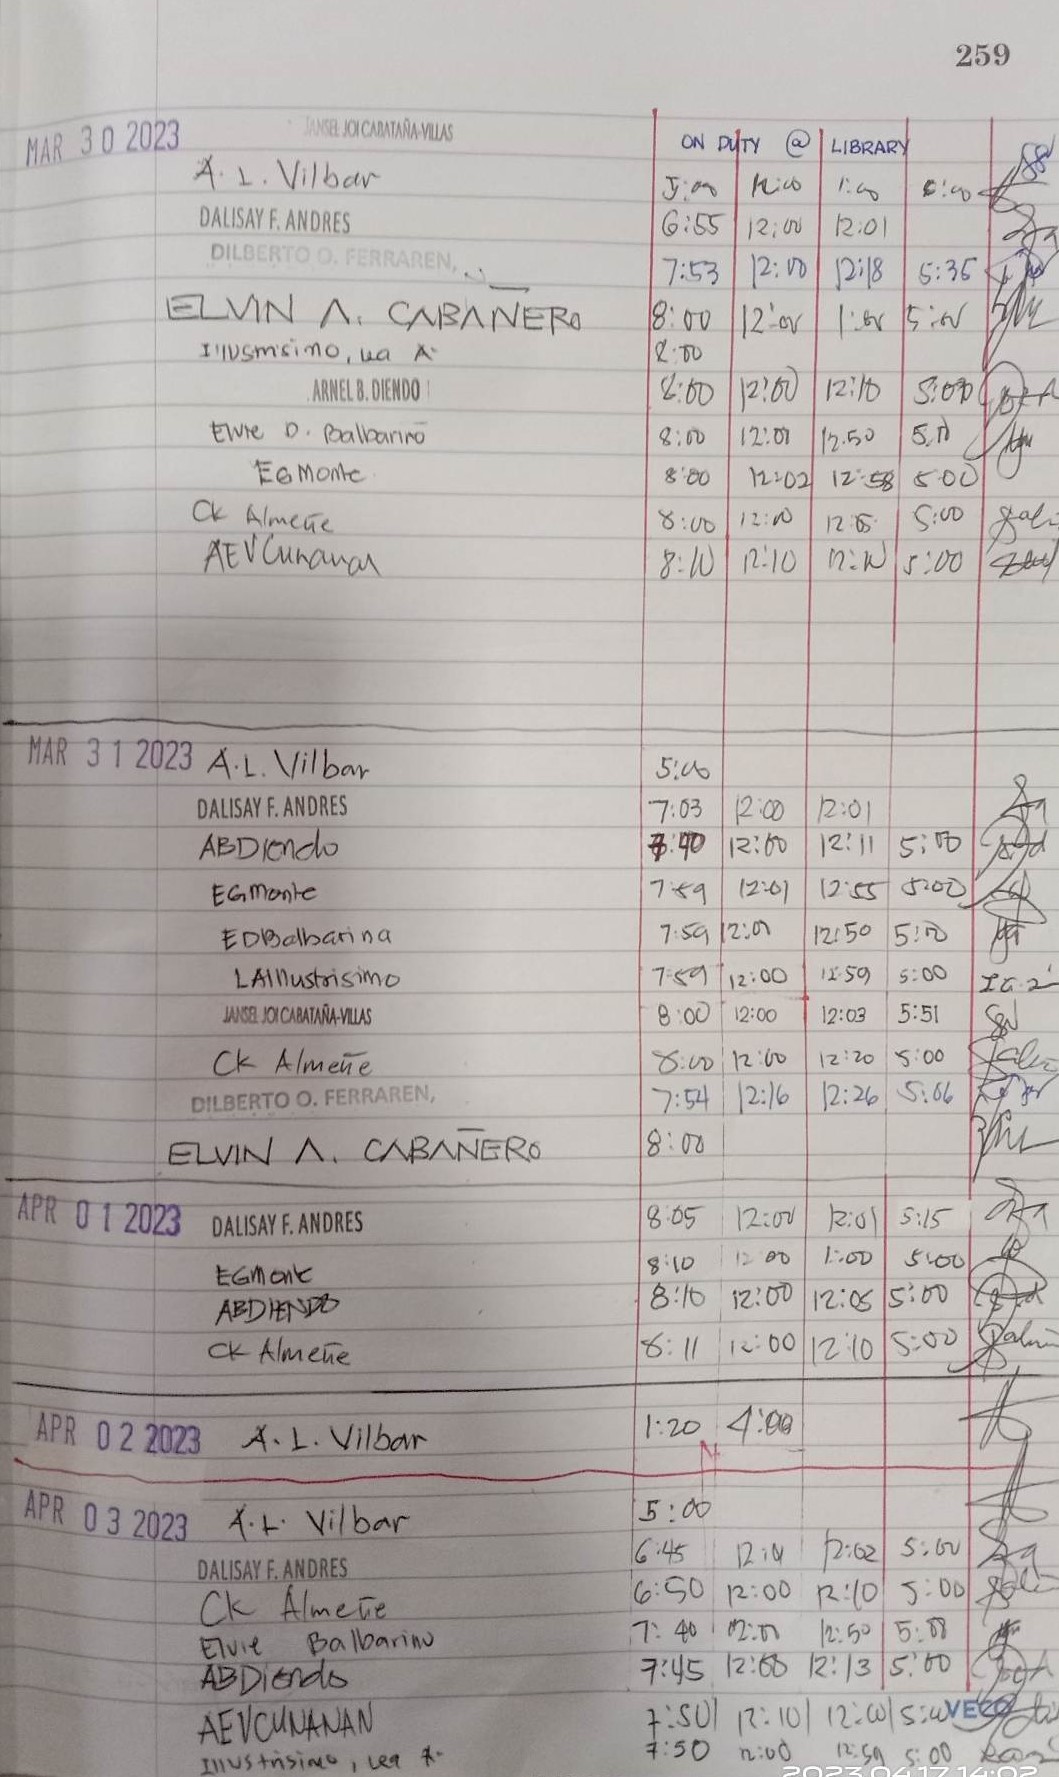 259
MAR 30 2023 JANSEL JOI CABATAÑA-VILLAS ON DUTY @ LIBRARY
A. L. Vilbar 5:00 12:00 1:00
DALISAY F. ANDRES 6:55 12:00 12:01
DILBERTO O. FERRAREN, 7:53 12:00 12:18 5:35
ELVIN A. CABAÑERO 8:00 12:00 1:00 5:00
Illustrisimo, Lea A. 8:00
ARNEL B. DIENDO 8:00 12:00 12:10 5:00
Elvie D. Balbarino 8:00 12:01 12:50 5:11
EGMonte 8:00 12:02 12:58 5:00
CK Almeñe 8:00 12:00 5:00
AEVCunanan 8:10 12:10 5:00
MAR 31 2023 A.L. Vilbar 5:00
DALISAY F. ANDRES 7:03 12:00 12:01
ABDiendo 7:40 12:00 12:11 5:00
EGMonte 7:59 12:01 12:55 5:00
EDBalbarina 7:59 12:01 12:50 5:00
LAIllustrisimo 7:59 12:00 12:59 5:00
JANSEL JOI CABATAÑA-VILLAS 8:00 12:00 12:03 5:51
CK Almeñe 8:00 12:00 12:20 5:00
DILBERTO O. FERRAREN, 7:54 12:16 12:26 5:06
ELVIN A. CABAÑERO 8:00
APR 01 2023 DALISAY F. ANDRES 8:05 12:00 12:01 5:15
EGMonte 8:10 12:00 1:00 5:00
ABDIENDO 8:10 12:00 12:05 5:00
CK Almeñe 8:11 12:00 12:10 5:00
APR 02 2023 A. L. Vilbar 1:20 4:00
APR 03 2023 A. L. Vilbar 5:00
DALISAY F. ANDRES 6:45 12:02 5:00
CK Almeñe 6:50 12:00 12:10 5:00
Elvie Balbarino 7:40 12:50
ABDiendo 7:45 12:00 12:13 5:00
AEVCUNANAN 7:50 12:10 VECO
Illustrisimo, Lea A. 7:50 12:00 12:59 5:00
2023.04.17 14:02